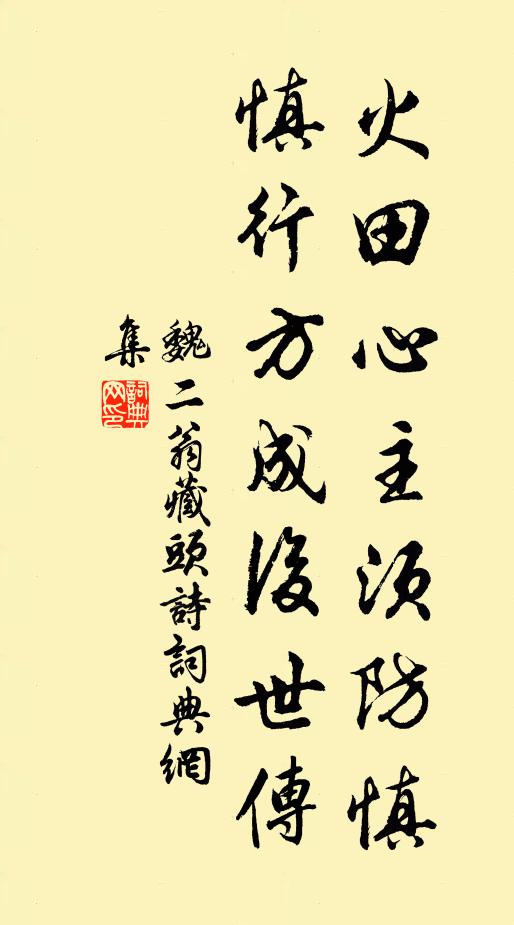 火田心主須防慎
慎行方成後世傳
魏二翁藏頭詩詞典網
集
詞典
网印